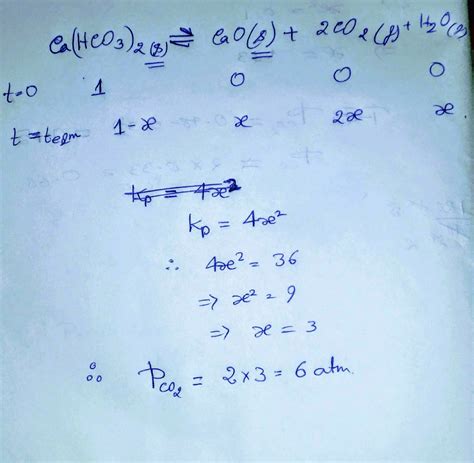 Ca(HCO3)2(s) ⇌ CaO(s) + 2CO2(g) + H2O(g)
t=0 1 0 0 0
t=teqm 1-x x 2x x
Kp = 4x²
Kp = 4x²
∴ 4x² = 36
⇒ x² = 9
⇒ x = 3
∴ PCO2 = 2×3 = 6 atm.